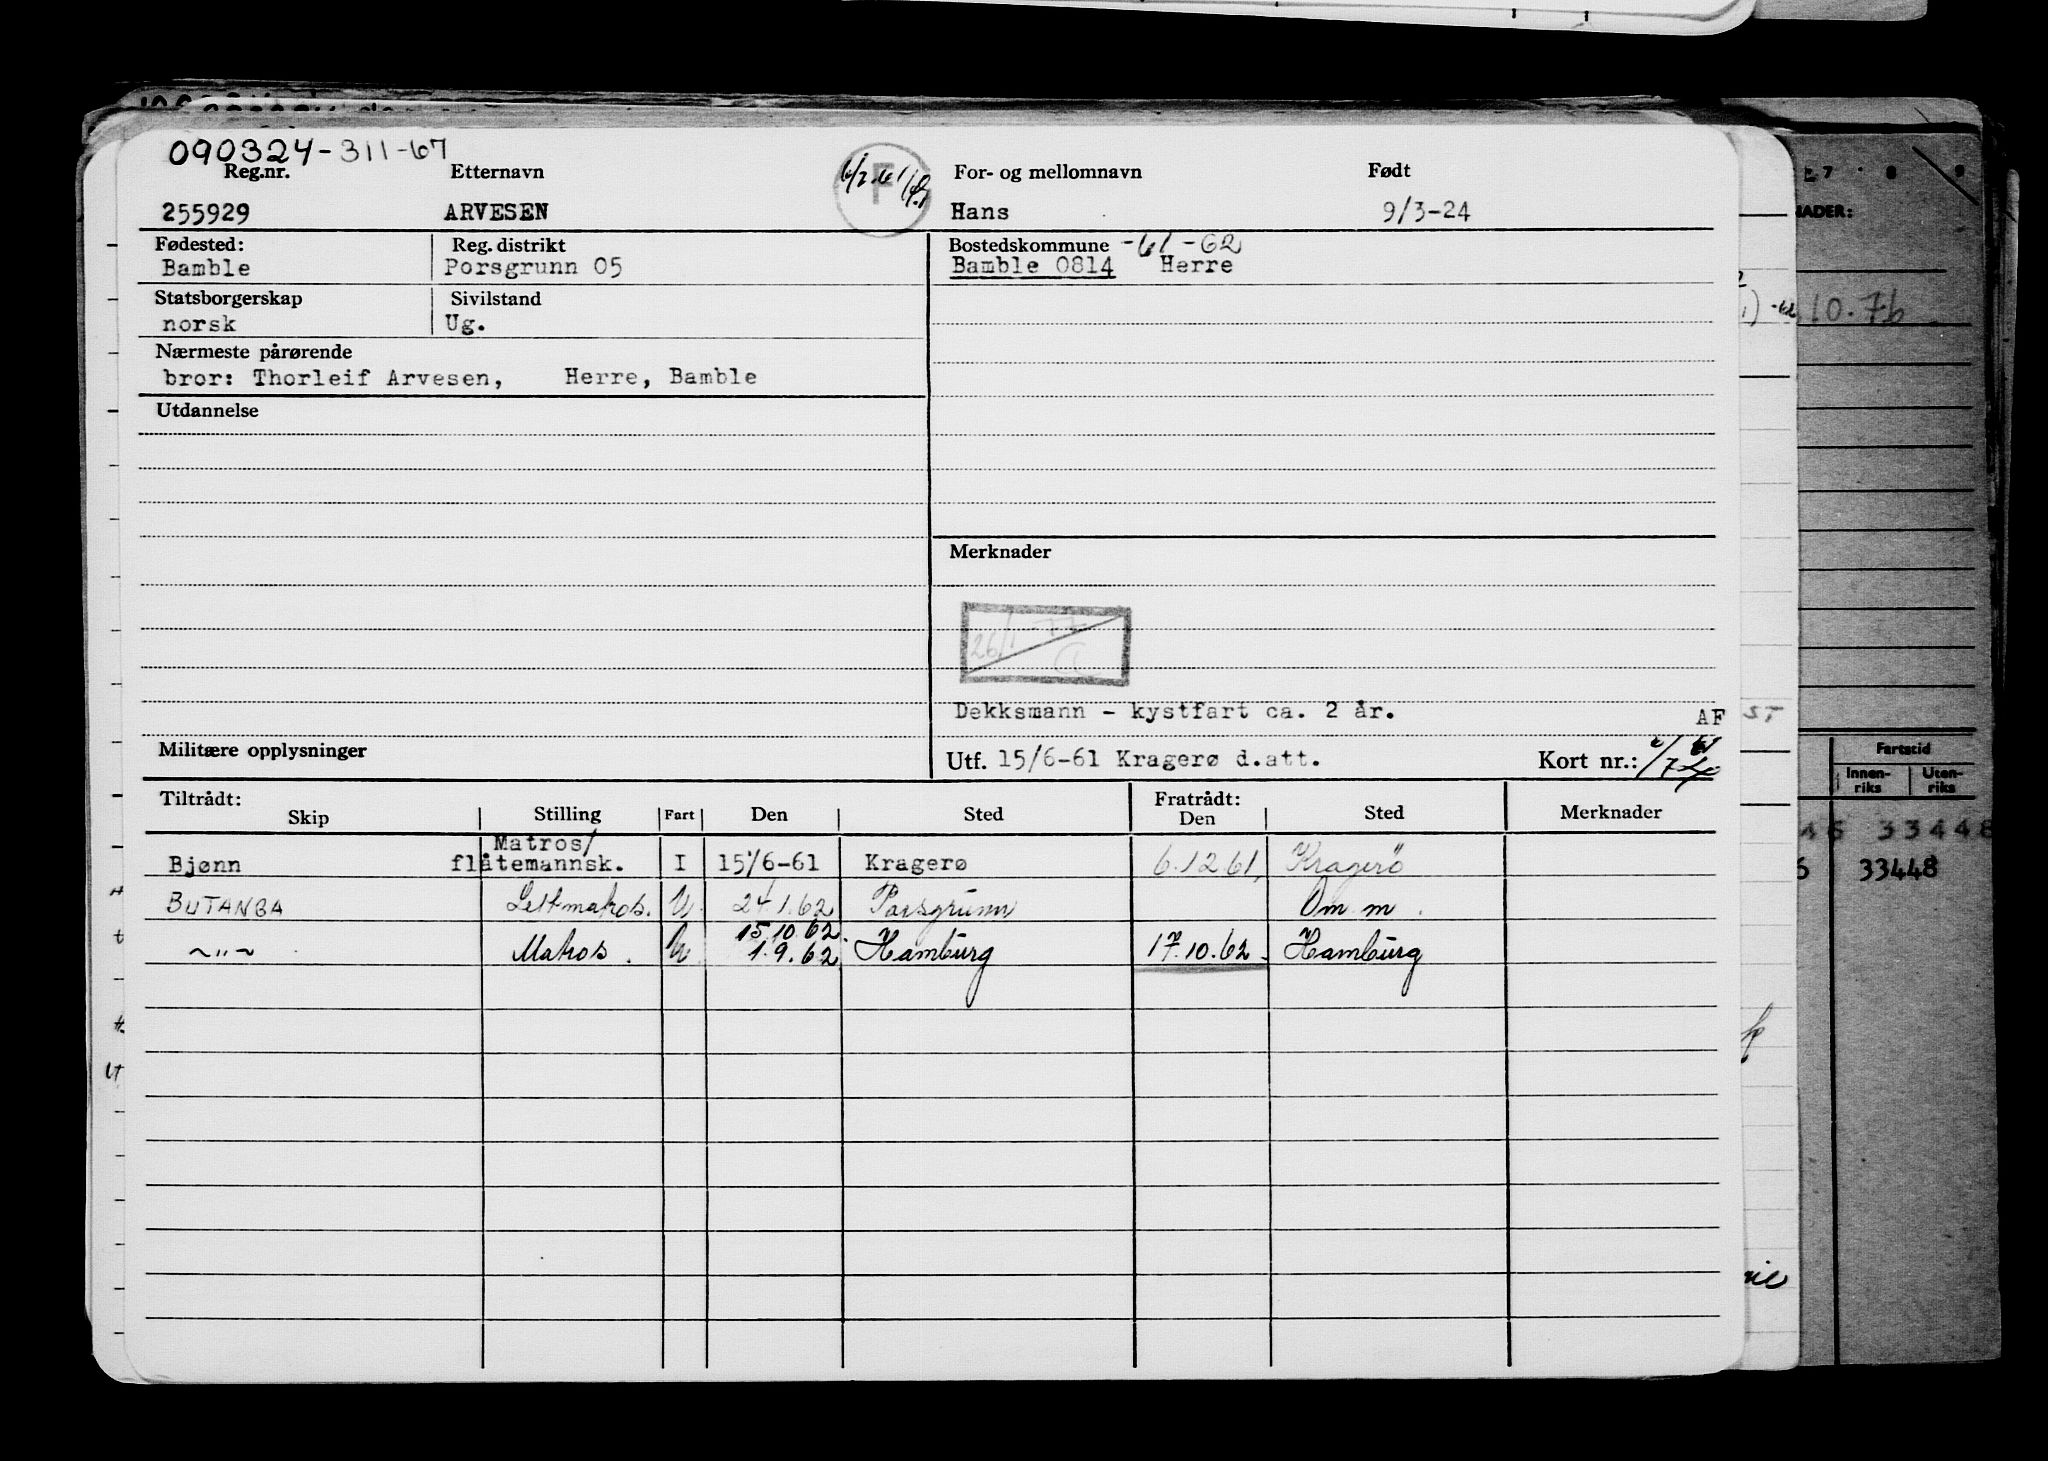 090324-311-67
Reg.nr. Etternavn F For- og mellomnavn Født
255929 ARVESEN Hans 9/3-24
Fødested: Reg. distrikt Bostedskommune -61 -62
Bamble Porsgrunn 05 Bamble 0814 Herre
Statsborgerskap Sivilstand
norsk Ug.
Nærmeste pårørende
bror: Thorleif Arvesen, Herre, Bamble
Utdannelse
Merknader
26/1 77
Dekksmann - kystfart ca. 2 år.
AF ST
Militære opplysninger Utf. 15/6-61 Kragerø d.att. Kort nr.:
Tiltrådt: Fratrådt:
Skip Stilling Fart Den Sted Den Sted Merknader
Matros/
Bjønn flåtemannsk. I 15/6-61 Kragerø 6.12 61, Kragerö
BUTANGA Lettmatros. U 24/1.62 Porsgrunn Om m.
15.10.62.
~"~ Matros. U 1.9.62 Hamburg 17.10.62. Hamburg
10.76
Fartstid
Innen-riks Uten-riks
33448
33448